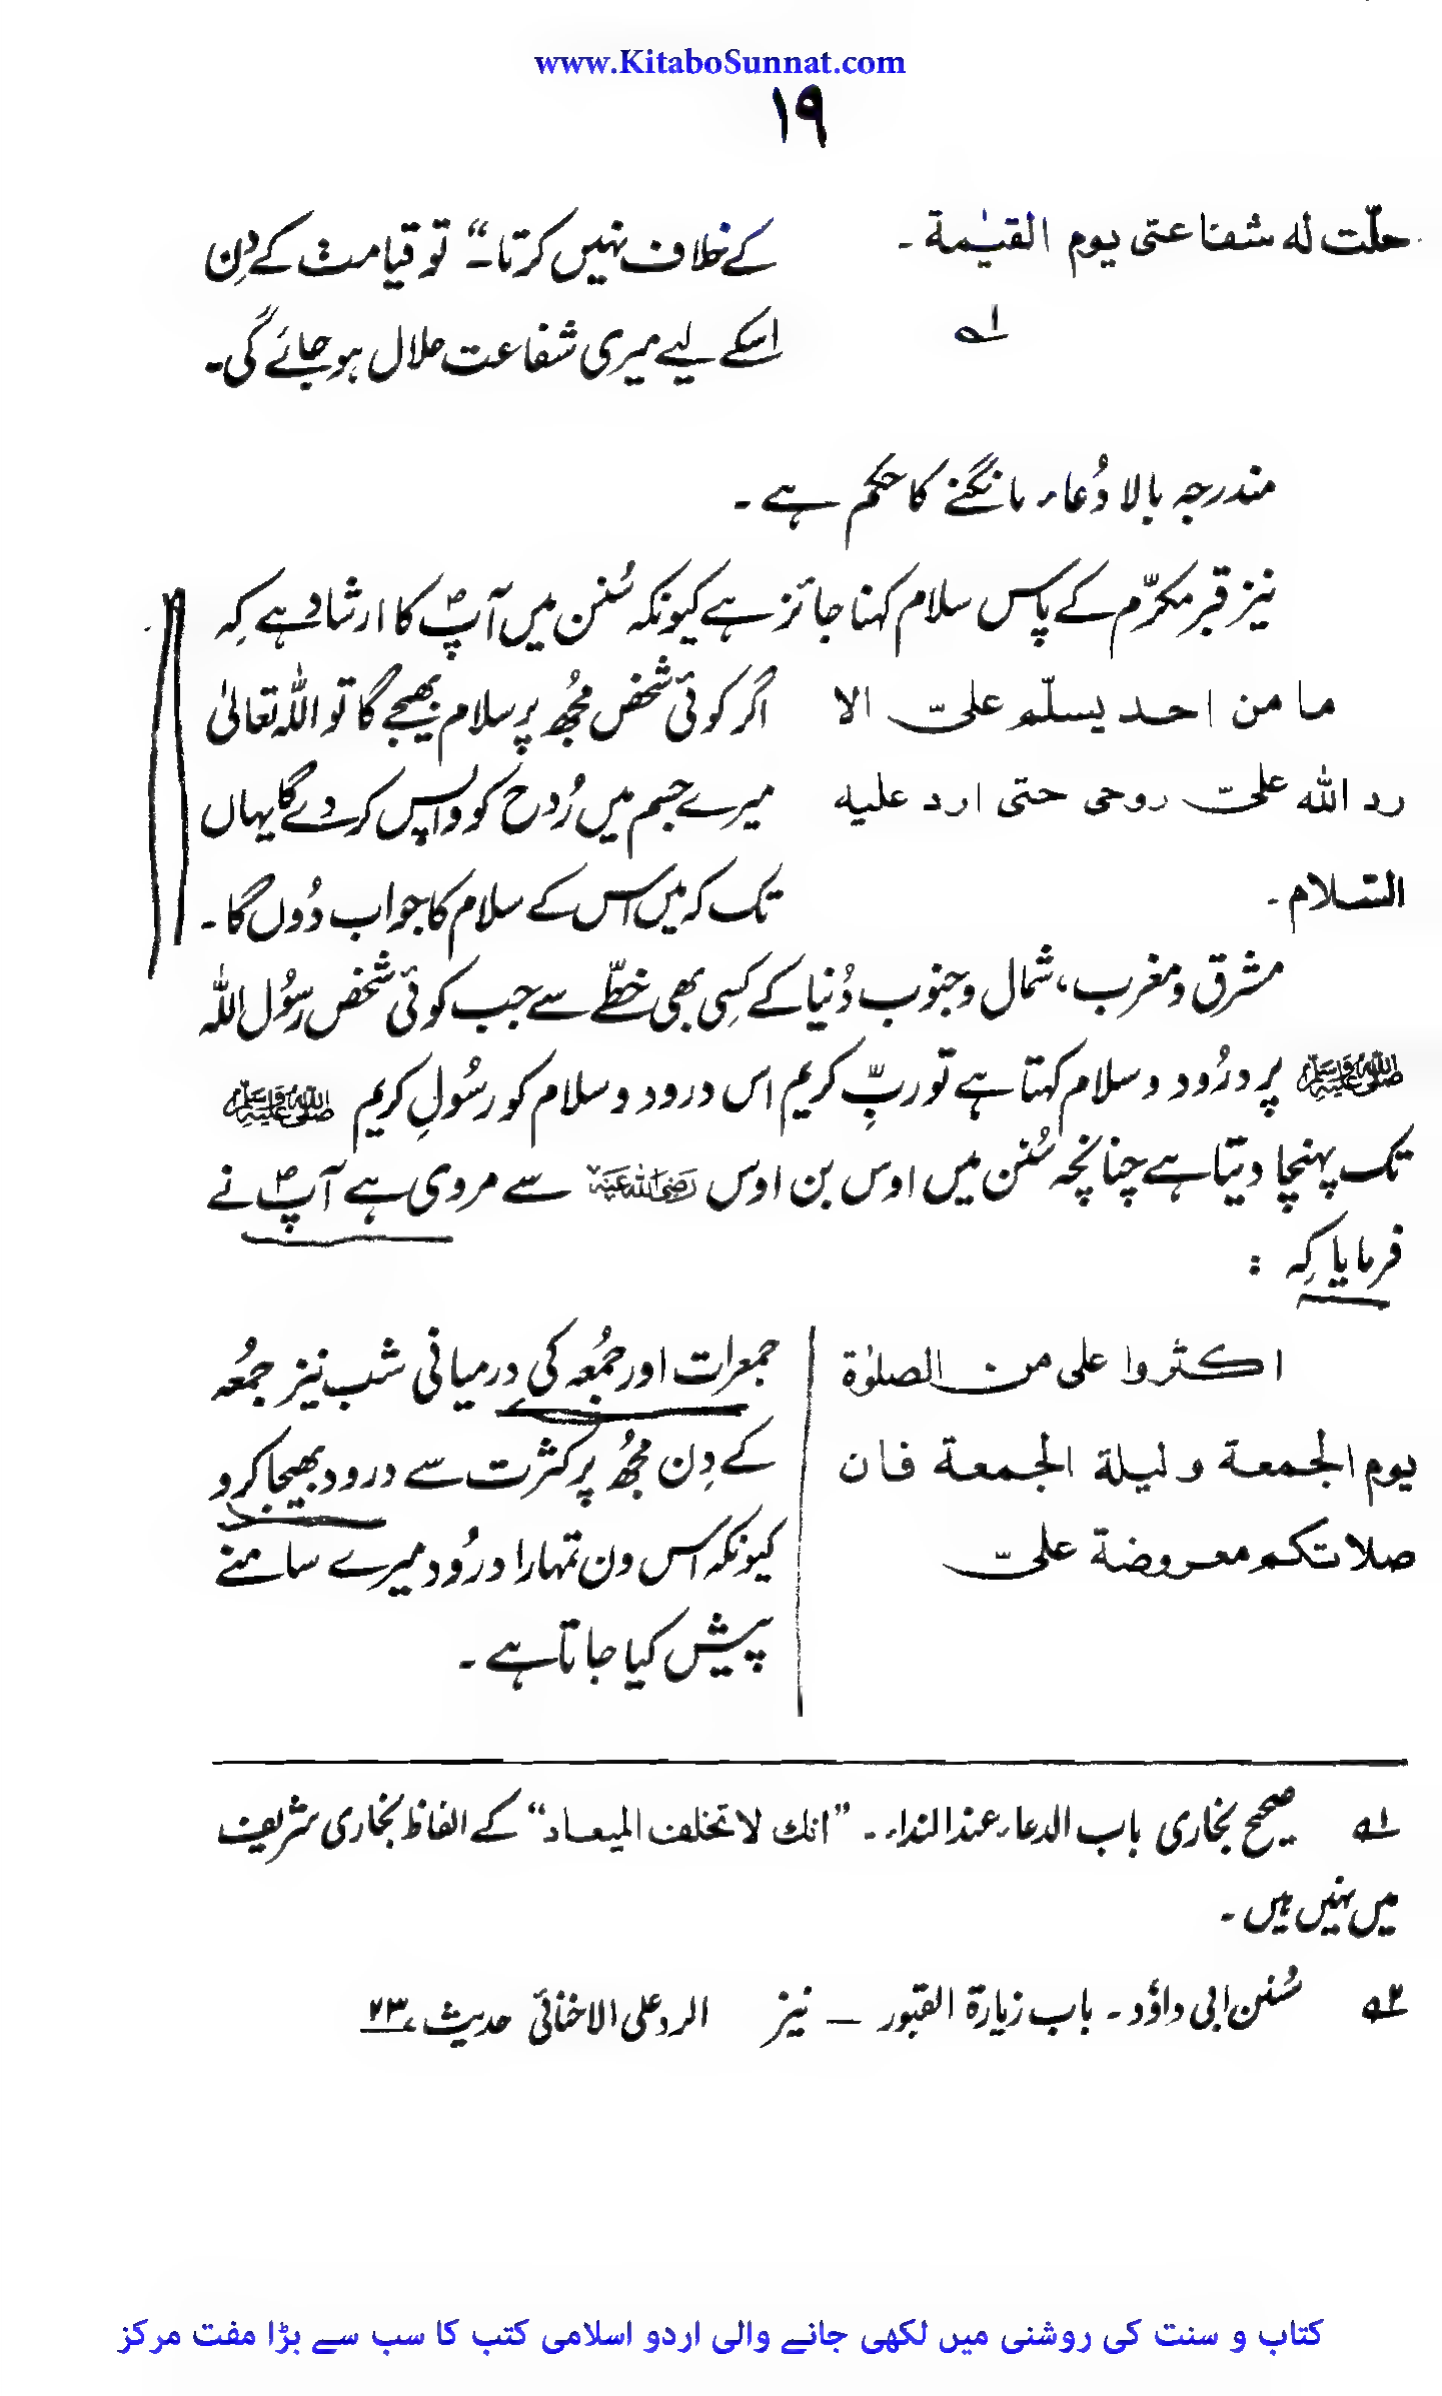 www.KitaboSunnat.com
۱۹
حلّت له شفاعتی یوم القیٰمة ۔ کے خلاف نہیں کرتا۔“ تو قیامت کے دِن
لہ اسکے لیے میری شفاعت حلال ہو جائے گی۔
مندرجہ بالا دُعاء مانگنے کا حکم ہے ۔
نیز قبر مکرّم کے پاس سلام کہنا جائز ہے کیونکہ سُنن میں آپؐ کا ارشاد ہے کِہ
ما من احد یسلّم علیّ الا اگر کوئی شخص مجُھ پر سلام بھیجے گا تو اللہ تعالیٰ
رد الله علیّ روحی حتی ارد علیه میرے جسم میں رُوح کو واپس کر دے گا یہاں
السّلام ۔ تک کہ میں اس کے سلام کا جواب دُوں گا ۔
مشرق و مغرب، شمال و جنوب دُنیا کے کِسی بھی خطّے سے جب کوئی شخص رسُول اللہ
ﷺ پر درُود و سلام کہتا ہے تو ربِّ کریم اس درود و سلام کو رسُولِ کریم ﷺ
تک پہنچا دیتا ہے چنانچہ سُنن میں اوس بن اوس رضی اللہ عنہ سے مروی ہے آپؐ نے
فرمایا کِہ :
اکثروا علی من الصلوٰة جمعرات اور جمُعہ کی درمیانی شب نیز جمُعہ
یوم الجمعة و لیلة الجمعة فان کے دِن مجُھ پر کثرت سے درود بھیجا کرو
صلاتکم معروضة علیّ کیونکہ اس دن تمہارا درُود میرے سامنے
پیش کیا جاتا ہے ۔
لہ صحیح بخاری باب الدعاء عند النداء ۔ ”انك لا تخلف المیعاد“ کے الفاظ بخاری شریف
میں نہیں ہیں ۔
۲ہ سُنن ابی داؤد ۔ باب زیارة القبور – نیز الرد علی الاخنائی حدیث ۲۳
کتاب و سنت کی روشنی میں لکھی جانے والی اردو اسلامی کتب کا سب سے بڑا مفت مرکز